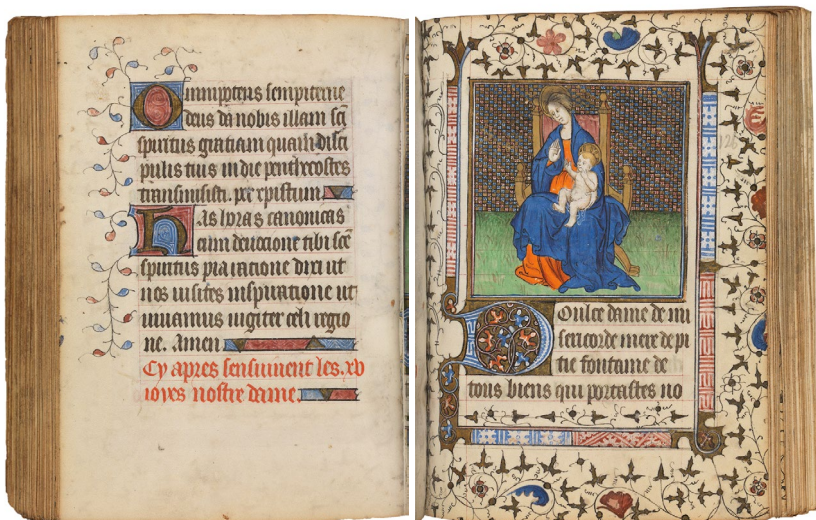 Omnipotens sempiterne
deus da nobis illam sci
spiritus gratiam quam disci
pulis tuis in die penthecostes
transmisisti. per xpistum
Has horas canonicas
cum devocione tibi scē
spiritus pia racione dixi ut
nos visites inspiratione ut
vivamus iugiter celi regio
ne. Amen
Cy apres sensuivent les .xv
ioyes nostre dame.
Doulce dame de mi
sericorde mere de pi
tie fontaine de
tous biens qui portastes no